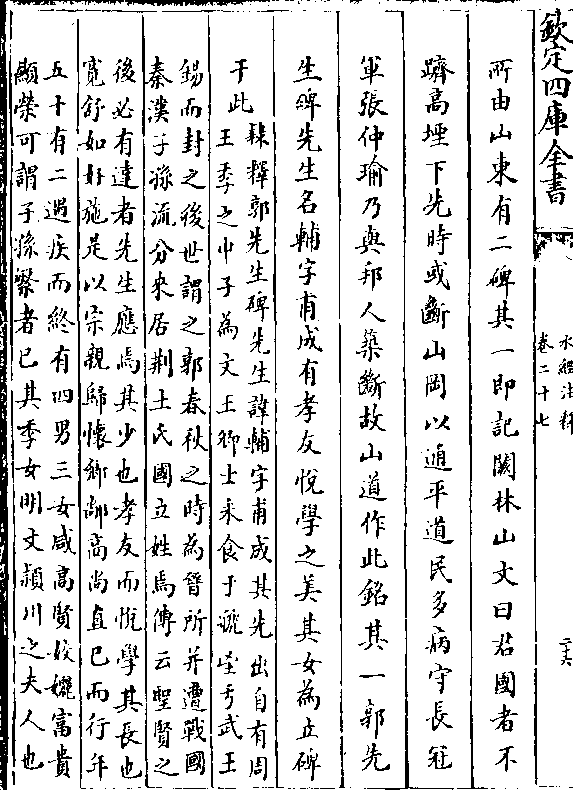 欽定四庫全書
水經注釋
卷二十七
二十六
所由山東有二碑其一即記闕林山文曰君國者不
躋高堙下先時或斷山岡以通平道民多病守長冠
軍張仲瑜乃與邦人築斷故山道作此銘其一郭先
生碑先生名輔字甫成有孝友悅學之美其女為立碑
于此
隸釋郭先生碑先生諱輔字甫成其先出自有周
王季之中子為文王卿士采食于虢至于武王
錫而封之後世謂之郭春秋之時為晉所并遭戰國
秦漢子孫流分來居荆土氏國立姓焉傳云聖賢之
後必有達者先生應焉其少也孝友而悅學其長也
寛舒如好施是以宗親歸懐鄉鄰高尚直己而行年
五十有二遇疾而終有四男三女咸高賢姣孋富貴
顯榮可謂子孫繁者已其季女明文潁川之夫人也